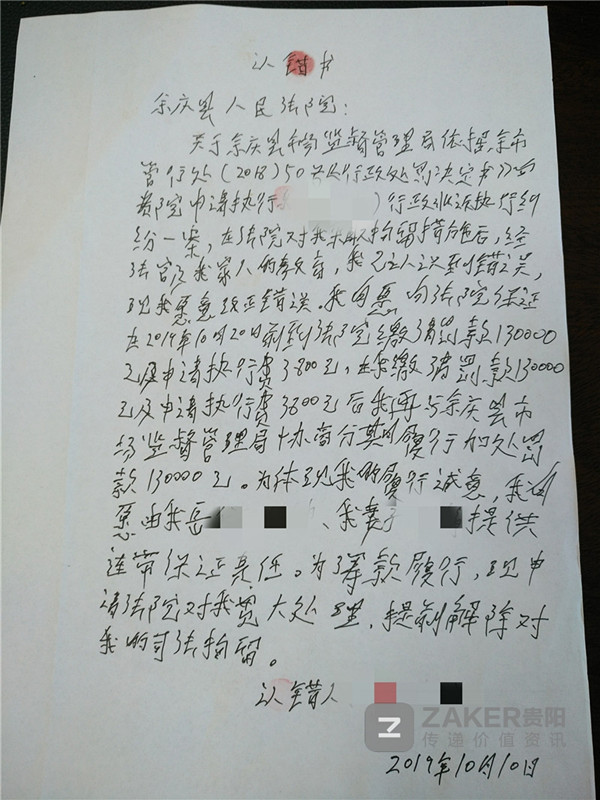 认错书
余庆县人民法院：
关于余庆县市场监督管理局依据余市
管行处(2018)50号《行政处罚决定书》向
贵院申请执行 )行政非诉执行纠
纷一案，在法院对我采取拘留措施后，经
法官及我家人的教育，我已认识到错误，
现我愿意改正错误。我自愿向法院保证
在2019年10月20日前到法院缴清罚款130000
元及申请执行费3800元，在缴清罚款130000
元及申请执行费3800元后我再与余庆县市
场监督管理局协商分期履行加处罚
款130000元。为体现我的履行诚意，我自
愿由我岳 、我妻 提供
连带保证责任。为筹款履行，现申
请法院对我宽大处理，提前解除对
我的司法拘留。
认错人
ZAKER贵阳
传递价值资讯
2019年10月10日